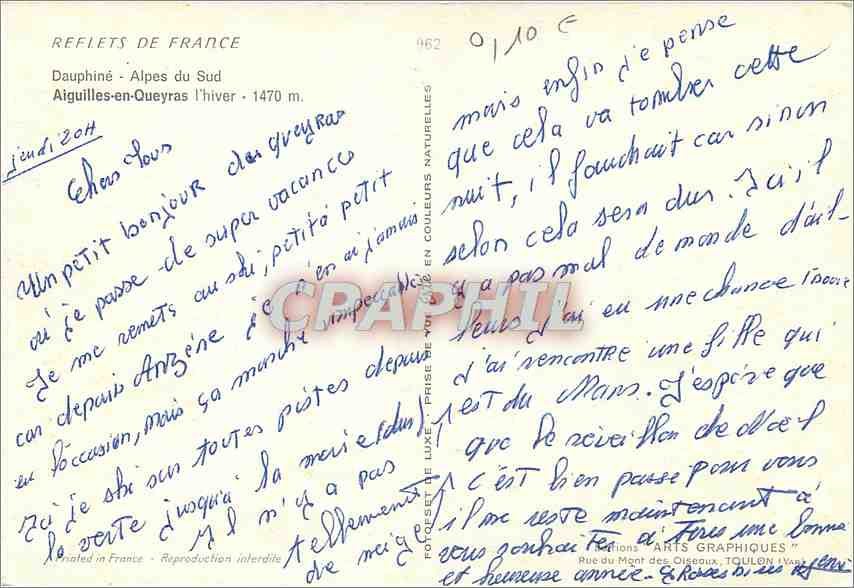 REFLETS DE FRANCE
962
0,10 €
Dauphiné - Alpes du Sud
Aiguilles-en-Queyras l'hiver - 1470 m.
jeudi 20H
Chers tous
Un petit bonjour des queyras
où je passe de super vacances
Je me remets au ski, petit à petit
car depuis Anzène je n'en ai jamais
eu l'occasion, mais ça marche impeccable
Ici je ski sur toutes pistes depuis
la verte jusqu'à la noire (dur)
Il n'y a pas
tellement
de neige
mais enfin je pense
que cela va tomber cette
nuit, il faudrait car sinon
selon cela sera dur. Ici il
y a pas mal de monde d'ail-
leurs j'ai eu une chance inouie
j'ai rencontré une fille qui
est du Mans. J'espère que
que le réveillon de Noël
c'est bien passé pour vous
il me reste maintenant à
vous souhaiter à tous une bonne
et heureuse année.
PHOTOFSET DE LUXE. PRISE DE VUE EN COULEURS NATURELLES
CPAPHIL
Printed in France - Reproduction interdite
Editions "ARTS GRAPHIQUES"
Rue du Mont des Oiseaux, TOULON (Var)